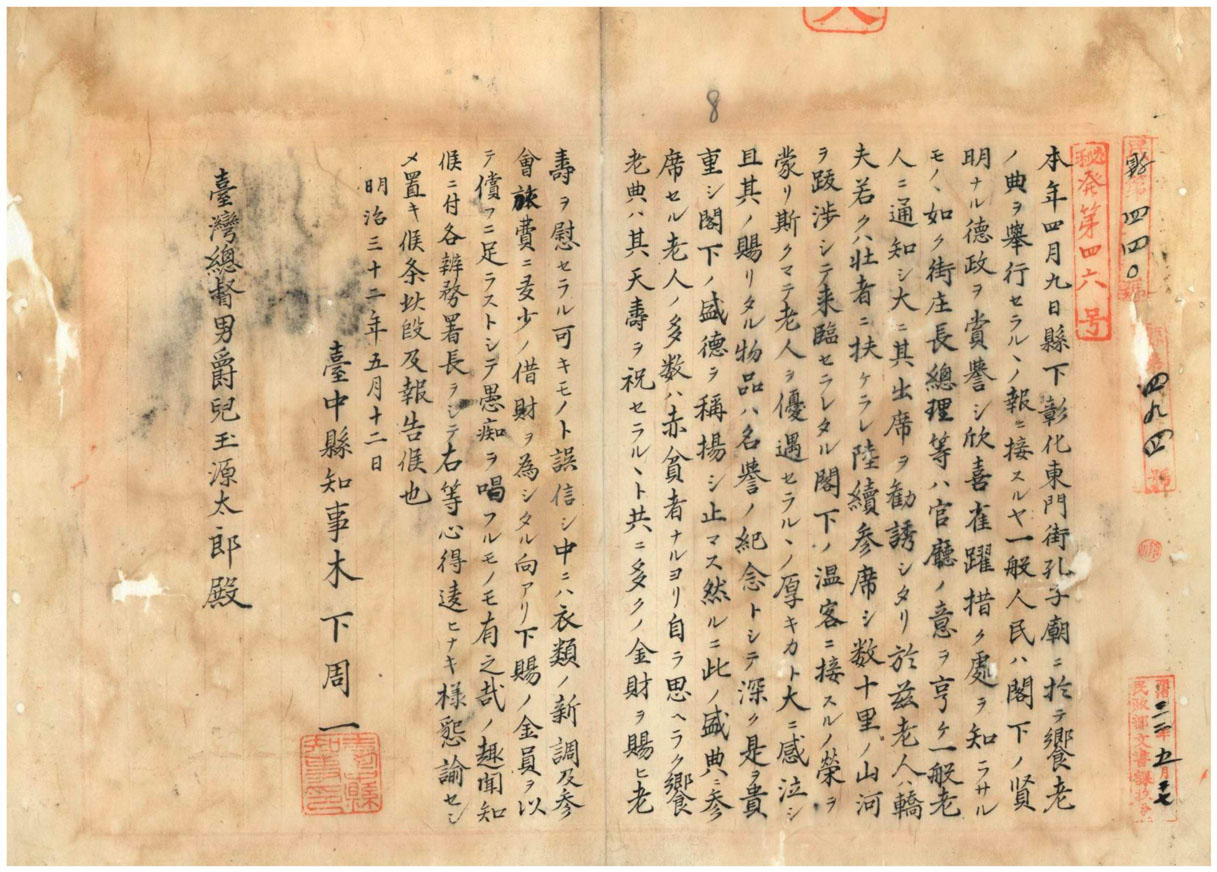 8
秘発第四六号
四四〇
四九四
民政部文書課
本年四月九日縣下彰化東門街孔子廟ニ於テ饗老
ノ典ヲ舉行セラルヽノ報ニ接スルヤ一般人民ハ閣下ノ賢
明ナル德政ヲ賞譽シ欣喜雀躍措ク處ヲ知ラサル
モノヽ如ク街庄長總理等ハ官廳ノ意ヲ亨ケ一般老
人ニ通知シ大ニ其出席ヲ勸誘シタリ於兹老人ハ轎
夫若クハ壮者ニ扶ケラレ陸續参席シ数十里ノ山河
ヲ跋渉シテ来臨セラレタル閣下ノ温容ニ接スルノ榮ヲ
蒙リ斯クマテ老人ヲ優遇セラルヽノ厚キカト大ニ感泣シ
且其ノ賜リタル物品ハ名譽ノ紀念トシテ深ク是ヲ貴
重シ閣下ノ盛德ヲ稱揚シ止マス然ルニ此ノ盛典ニ参
席セル老人ノ多数ハ赤貧者ナルヨリ自ラ思ヘラク饗
老典ハ其天壽ヲ祝セラルヽト共ニ多クノ金財ヲ賜ヒ老
壽ヲ慰セラル可キモノト誤信シ中ニハ衣類ノ新調及参
會旅費ニ多少ノ借財ヲ為シタル向アリ下賜ノ金員ヲ以
テ償フニ足ラストシテ愚痴ヲ唱フルモノモ有之哉ノ趣聞知
候ニ付各辨務署長ヲシテ右等心得違ヒナキ様懇諭セシ
メ置キ候条此段及報告候也
明治三十二年五月十二日
臺中縣知事木下周一
臺中縣知事印
臺灣總督男爵兒玉源太郎殿